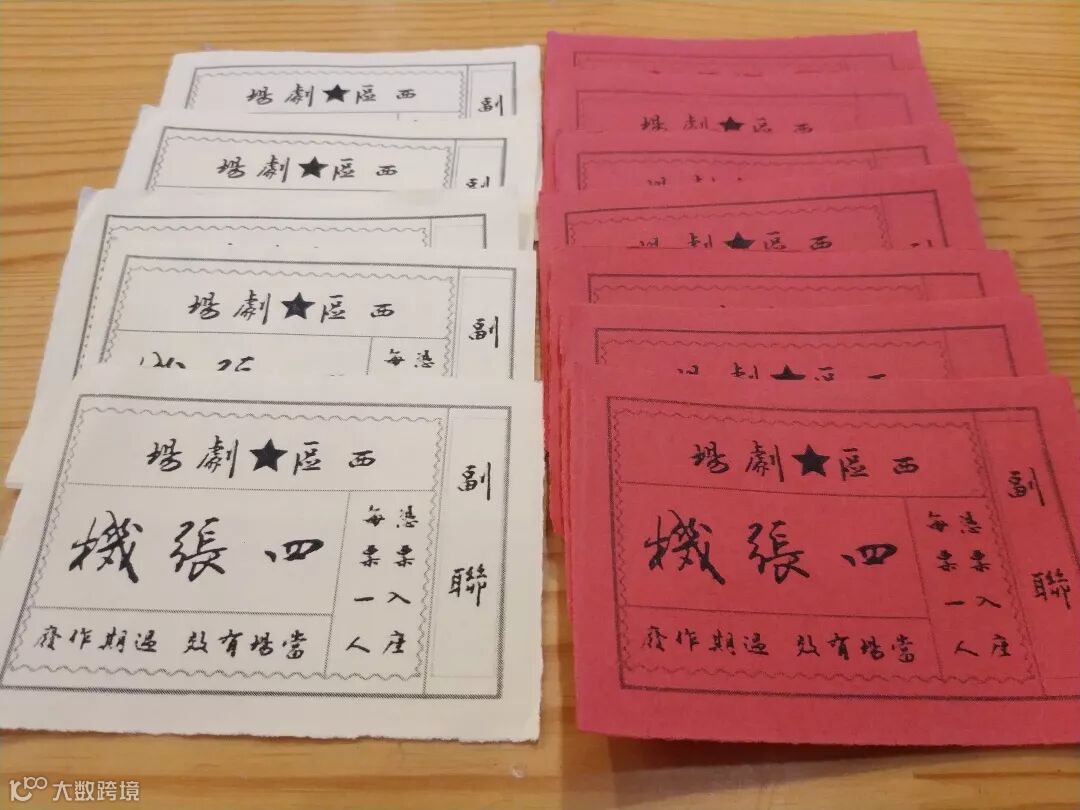 西區★劇場
副
西區★劇場
副
西區★劇場
副
憑
每
西區★劇場
四張機
憑票入座
每票一人
當場有效 過期作廢
副聯
西區★劇場
西區★劇場
副
西區★劇場
四張機
憑票入座
每票一人
當場有效 過期作廢
副聯
大数跨境